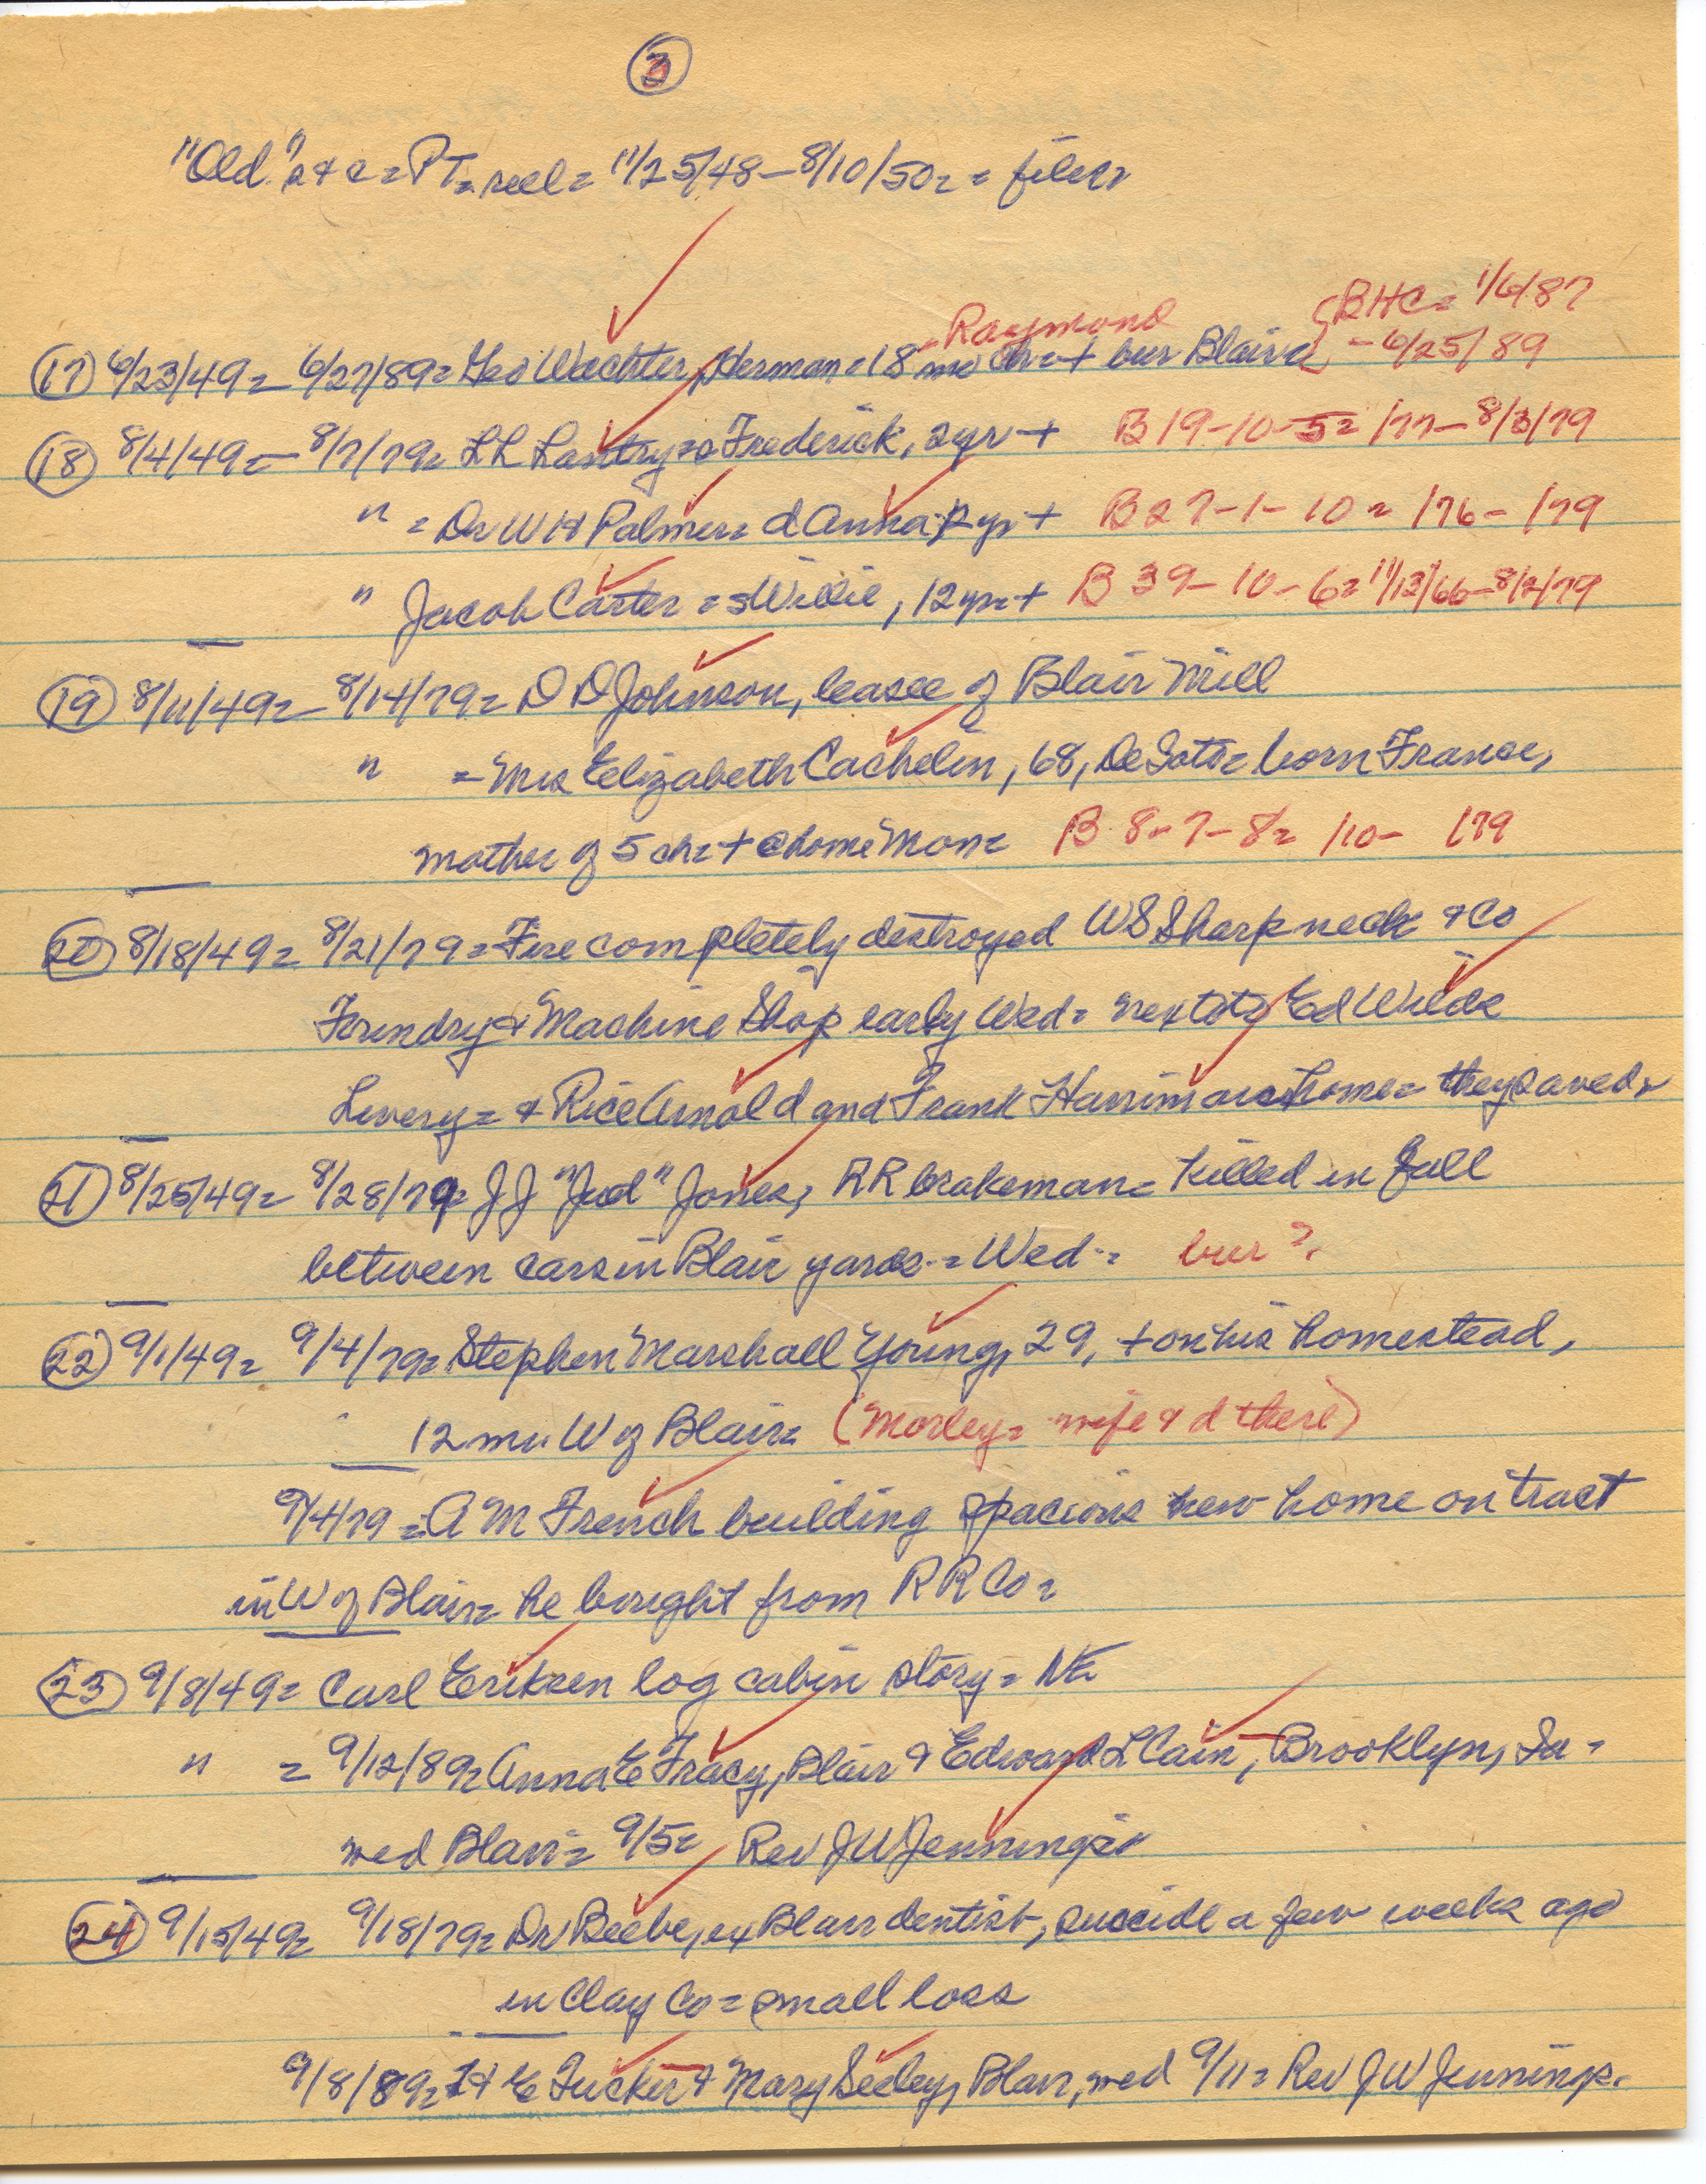 3
"Old" 2 & c = PT = reel = 11/25/48 – 8/10/50 = = filer
Raymond {BHC = 1/6/87
(17) 6/23/49 = – 6/27/89 = Geo Wachter, Herman = 18 mo ch = + bur Blair = – 6/25/89
(18) 8/4/49 = – 8/7/79 = LL Lantry = s Frederick, 2 yr + B 19-10-5 = /77 – 8/3/79
" = Dr W H Palmer = d Anna, 2 yr + B 27-1-10 = /76 – /79
" Jacob Carter = s Willie, 12 yr = + B 39-10-6 = 11/12/66 – 8/2/79
(19) 8/11/49 = – 8/14/79 = D D Johnson, leasee of Blair Mill
" = Mrs Elizabeth Cachelin, 68, DeSoto = born France,
mother of 5 ch = + @ home Mon = B 8-7-8 = /10 – /79
(20) 8/18/49 = 8/21/79 = Fire completely destroyed W S Sharpneck & Co
Foundry & Machine Shop early Wed = next to Ed Wilds
Livery = & Rice Arnold and Frank Harriman home = they saved =
(21) 8/25/49 = 8/28/79 = J J "Jud" Jones, RR brakeman = killed in fall
between cars in Blair yards = Wed = bur ?
(22) 9/1/49 = 9/4/79 = Stephen Marshall Young, 29, + on his homestead,
12 mi W of Blair = (Morley = wife & d there)
9/4/79 = A M French building spacious new home on tract
in W of Blair = he bought from RR Co =
(23) 9/8/49 = Carl Eriksen log cabin story = NE
" = 9/12/89 = Anna E Tracy, Blair & Edward L Cain, Brooklyn, Ia =
wed Blair = 9/5 = Rev J W Jennings =
(24) 9/15/49 = 9/18/79 = Dr Beebe, ex Blair dentist, suicide a few weeks ago
in Clay Co = small loss
9/8/89 = E Tucker & Mary Seeley, Blair, wed 9/11 = Rev J W Jennings.